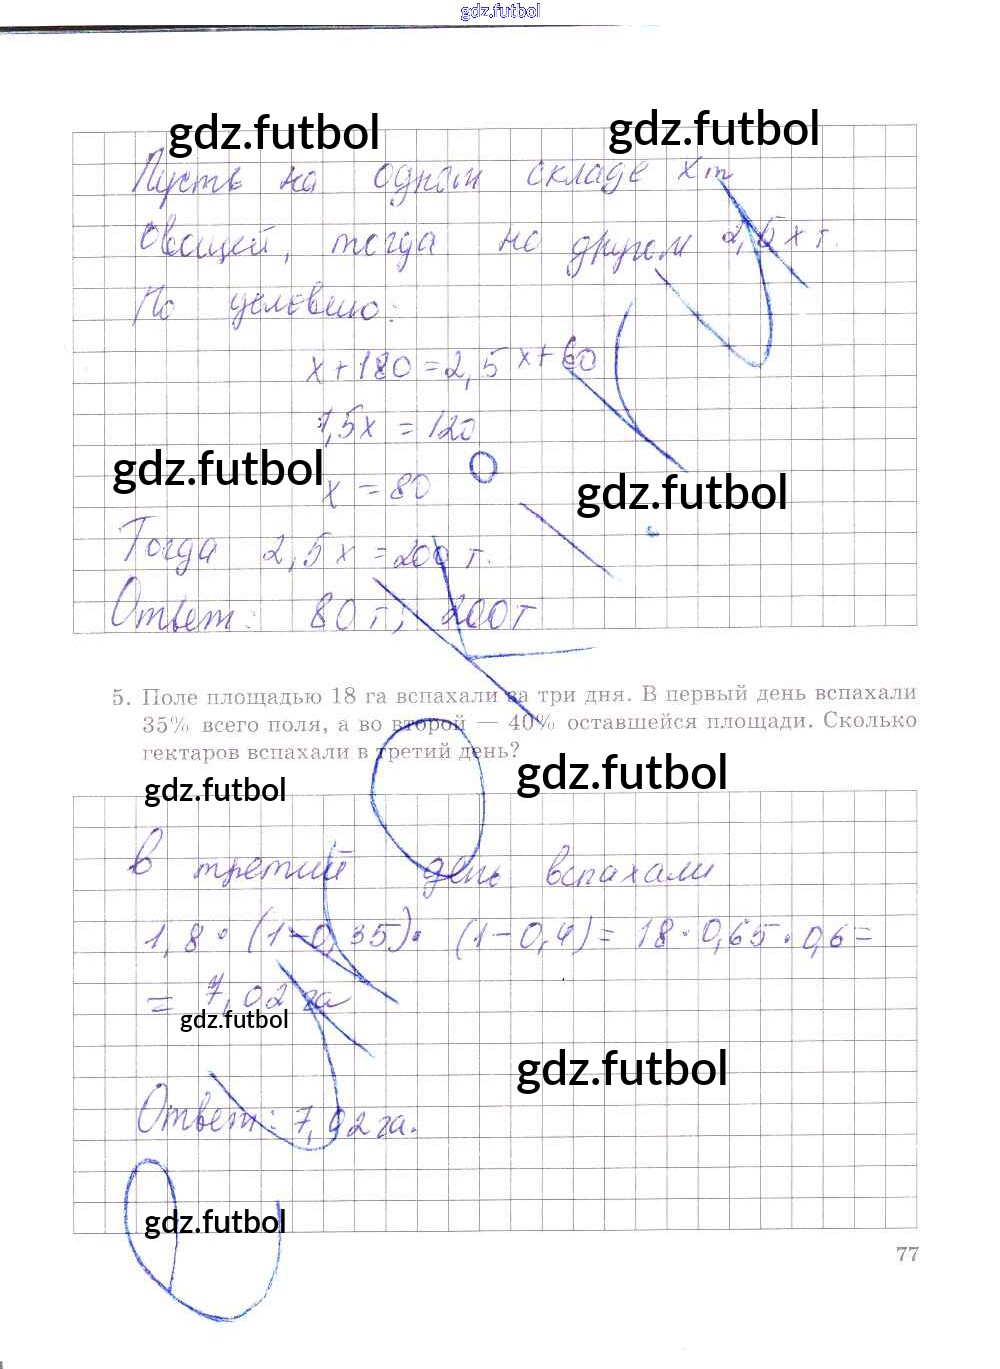 gdz.futbol
gdz.futbol gdz.futbol
Пусть на одном складе x т
овощей, тогда на другом 2,5 x т.
По условию:
x + 180 = 2,5 x + 60
1,5x = 120
gdz.futbol
x = 80
gdz.futbol
Тогда 2,5 x = 200 т.
Ответ: 80 т; 200 т
5. Поле площадью 18 га вспахали за три дня. В первый день вспахали
35% всего поля, а во второй — 40% оставшейся площади. Сколько
гектаров вспахали в третий день?
gdz.futbol
gdz.futbol
В третий день вспахали
1,8 · (1-0,35) · (1-0,4) = 18 · 0,65 · 0,6 =
= 7,02 га
gdz.futbol
gdz.futbol
Ответ: 7,02 га.
gdz.futbol
77